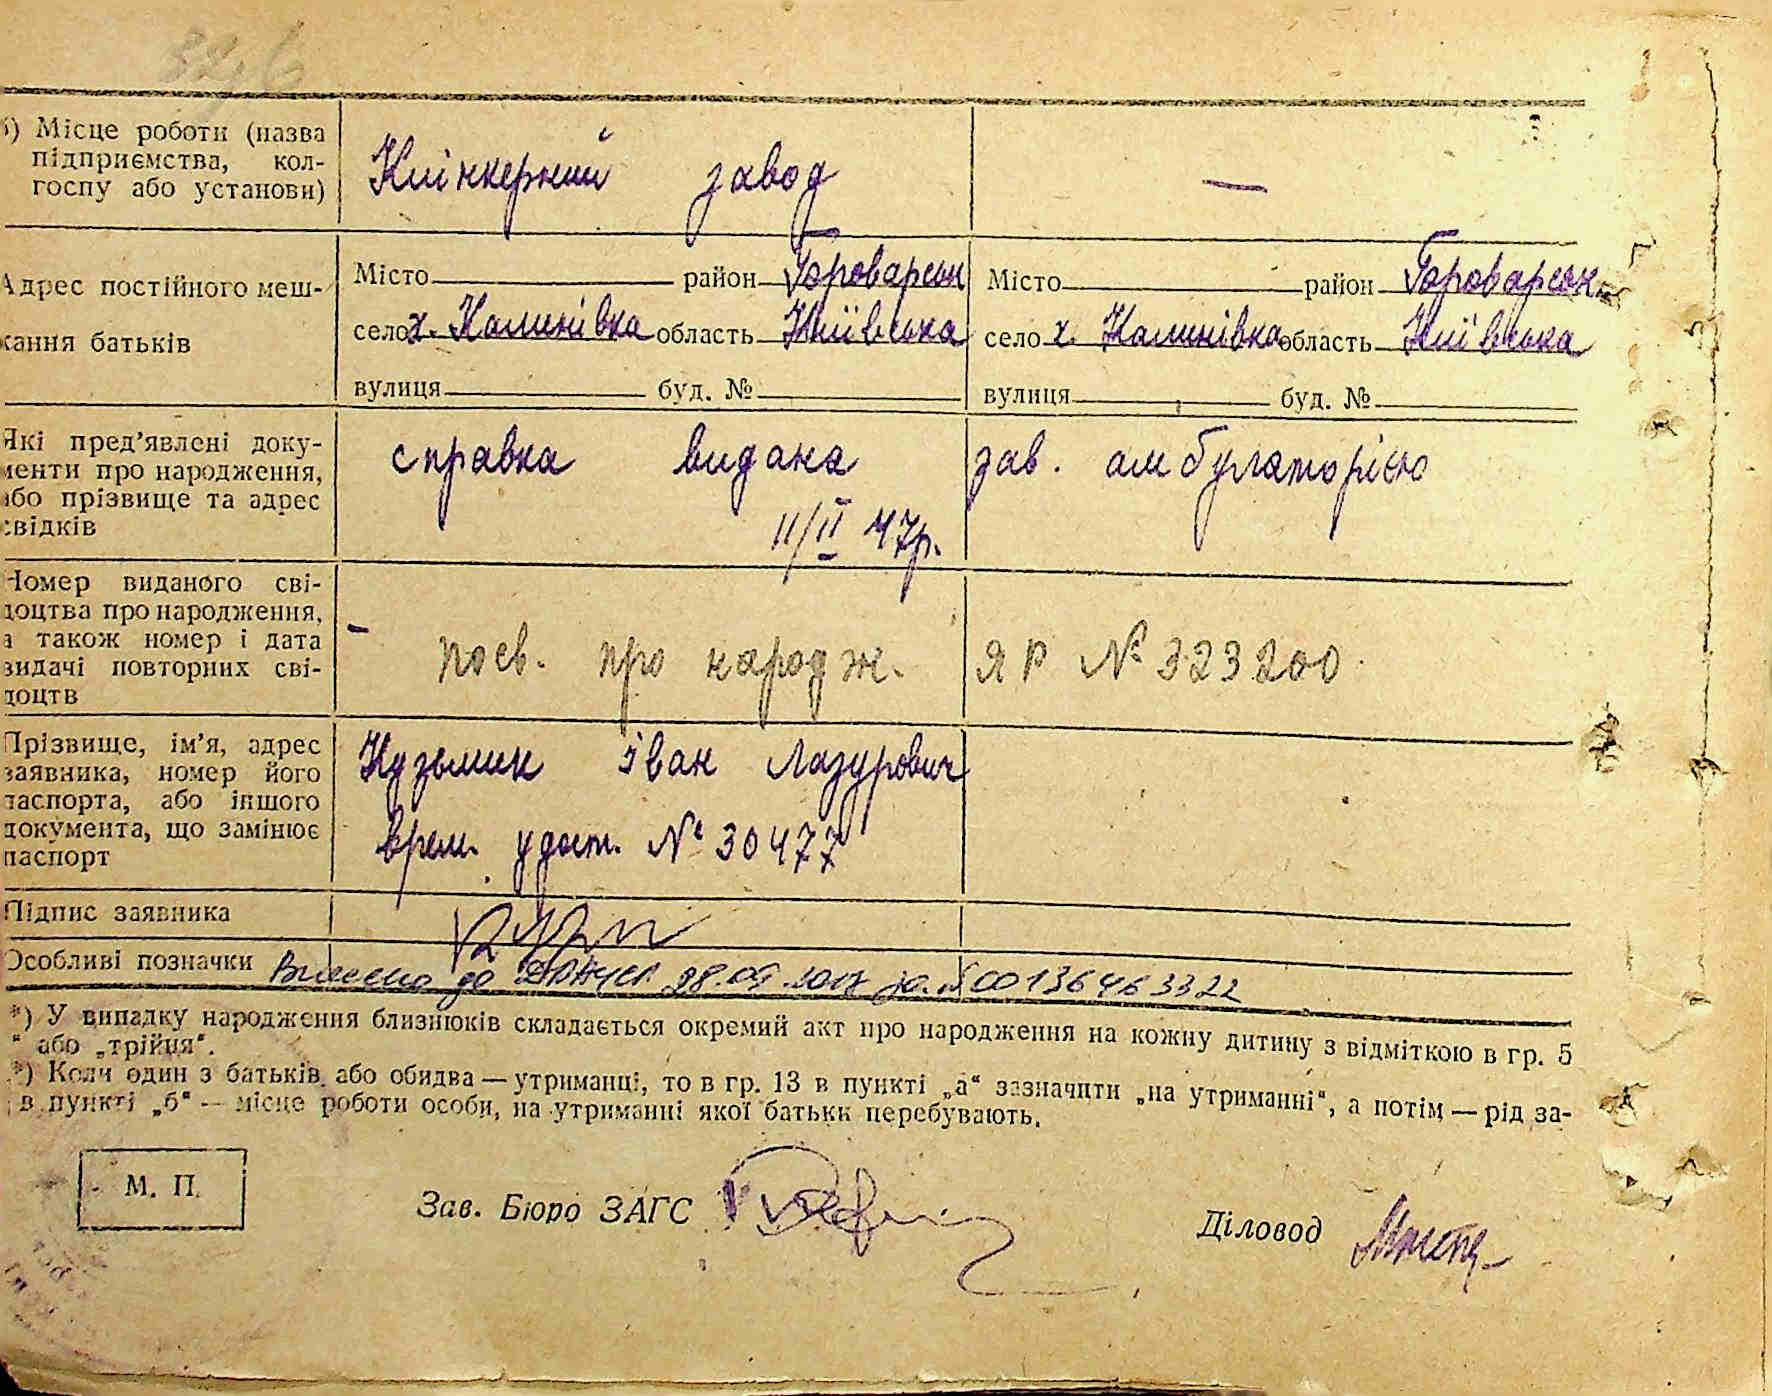 б) Місце роботи (назва
підприємства, кол-
госпу або установи)
Клінкерний завод
—
Адрес постійного меш-
кання батьків
Місто район Броварськ
село х. Калинівка область Київська
вулиця буд. №
Місто район Броварськ
село х. Калинівка область Київська
вулиця буд. №
Які пред'явлені доку-
менти про народження,
або прізвище та адрес
свідків
справка видана зав. амбулаторією
11/II 47р.
Номер виданого сві-
доцтва про народження,
а також номер і дата
видачі повторних сві-
доцтв
посв. про народж. ЯР № 323200.
Прізвище, ім'я, адрес
заявника, номер його
паспорта, або іншого
документа, що замінює
паспорт
Кузьмик Іван Лазурович
врем. удост. № 30477
Підпис заявника
Особливі позначки Внесено до ДРАЦСГ 28.09.2017 за № 00136463322
*) У випадку народження близнюків складається окремий акт про народження на кожну дитину з відміткою в гр. 5
" або „трійця".
*) Коли один з батьків або обидва — утриманці, то в гр. 13 в пункті „а" зазначити „на утриманні", а потім — рід за-
в пункті „б" — місце роботи особи, на утриманні якої батьки перебувають.
М. П.
Зав. Бюро ЗАГС
Діловод